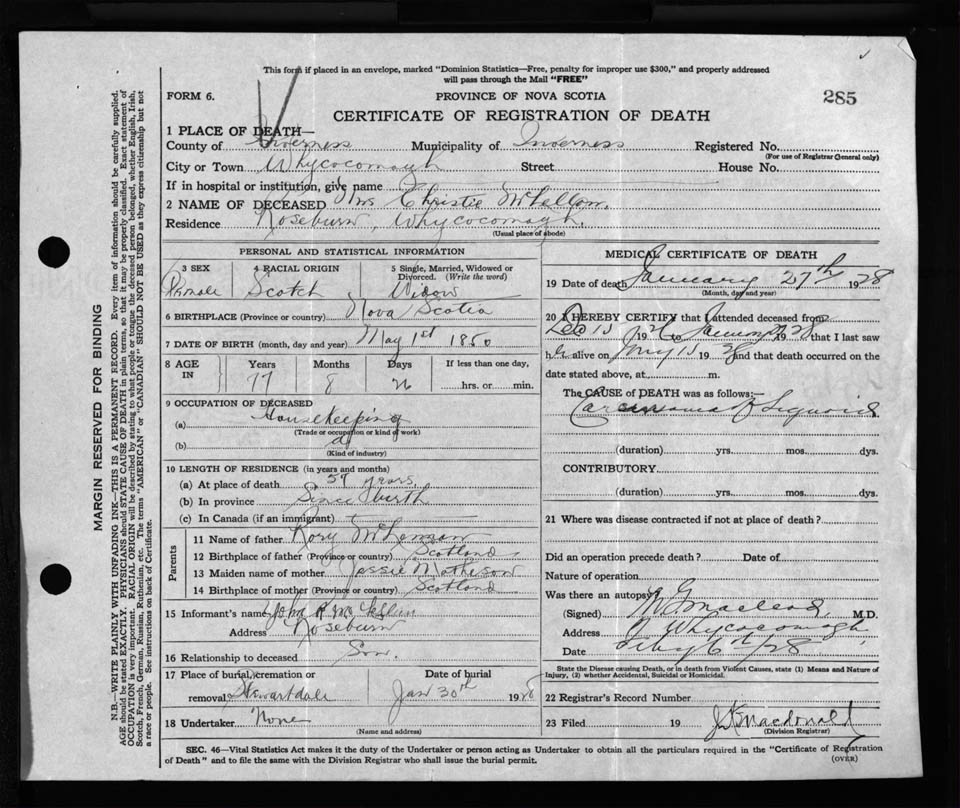 This form if placed in an envelope, marked "Dominion Statistics—Free, penalty for improper use $300," and properly addressed
will pass through the Mail "FREE"
FORM 6.
PROVINCE OF NOVA SCOTIA
285
CERTIFICATE OF REGISTRATION OF DEATH
1 PLACE OF DEATH—
County of Inverness Municipality of Inverness Registered No.
(For use of Registrar General only)
City or Town Whycocomagh Street House No.
If in hospital or institution, give name
2 NAME OF DECEASED Mrs Christie McLellan.
Residence Roseburn, Whycocomagh.
(Usual place of abode)
PERSONAL AND STATISTICAL INFORMATION
3 SEX 4 RACIAL ORIGIN 5 Single, Married, Widowed or Divorced. (Write the word)
Female Scotch Widow
6 BIRTHPLACE (Province or country) Nova Scotia
7 DATE OF BIRTH (month, day and year) May 1st 1850
8 AGE IN Years Months Days If less than one day,
77 8 26 hrs. or min.
9 OCCUPATION OF DECEASED
(a) Housekeeping
(Trade or occupation or kind of work)
(b) do
(Kind of industry)
10 LENGTH OF RESIDENCE (in years and months)
(a) At place of death 57 years.
(b) In province Since birth
(c) In Canada (if an immigrant)
Parents
11 Name of father Rory McLennan
12 Birthplace of father (Province or country) Scotland
13 Maiden name of mother Jessie Matheson
14 Birthplace of mother (Province or country) Scotland
15 Informant's name John R McLellan
Address Roseburn
16 Relationship to deceased Son.
17 Place of burial, cremation or Date of burial
removal Stewartdale Jan 30th 1928
18 Undertaker None
(Name and address)
MEDICAL CERTIFICATE OF DEATH
19 Date of death January 27th 1928
(Month, day and year)
20 I HEREBY CERTIFY that I attended deceased from
Dec 15 19 to 1928 that I last saw
h alive on 15 19 and that death occurred on the
date stated above, at m.
The CAUSE of DEATH was as follows:—
Carcinoma of Sigmoid
(duration) yrs. mos. dys.
CONTRIBUTORY
(duration) yrs. mos. dys.
21 Where was disease contracted if not at place of death?
Did an operation precede death? Date of
Nature of operation
Was there an autopsy?
(Signed) MacLeod, M.D.
Address Whycocomagh
Date Feby 6th/28
State the Disease causing Death, or in death from Violent Causes, state (1) Means and Nature of
Injury, (2) whether Accidental, Suicidal or Homicidal.
22 Registrar's Record Number
23 Filed 19 Macdonald
(Division Registrar)
SEC. 46—Vital Statistics Act makes it the duty of the Undertaker or person acting as Undertaker to obtain all the particulars required in the "Certificate of Registration
of Death" and to file the same with the Division Registrar who shall issue the burial permit.
(OVER)
MARGIN RESERVED FOR BINDING
N.B.—WRITE PLAINLY WITH UNFADING INK—THIS IS A PERMANENT RECORD. Every item of information should be carefully supplied.
AGE should be stated EXACTLY. PHYSICIANS should STATE CAUSE OF DEATH in plain terms, so that it may be properly classified. Exact statement of
OCCUPATION is very important. RACIAL ORIGIN will be described by stating to what people or tongue the deceased person belonged, whether English, Irish,
Scotch, French, German, Russian, Ruthenian, etc. The terms "AMERICAN" or "CANADIAN" SHOULD NOT BE USED as they express citizenship but not
a race or people. See instructions on back of Certificate.